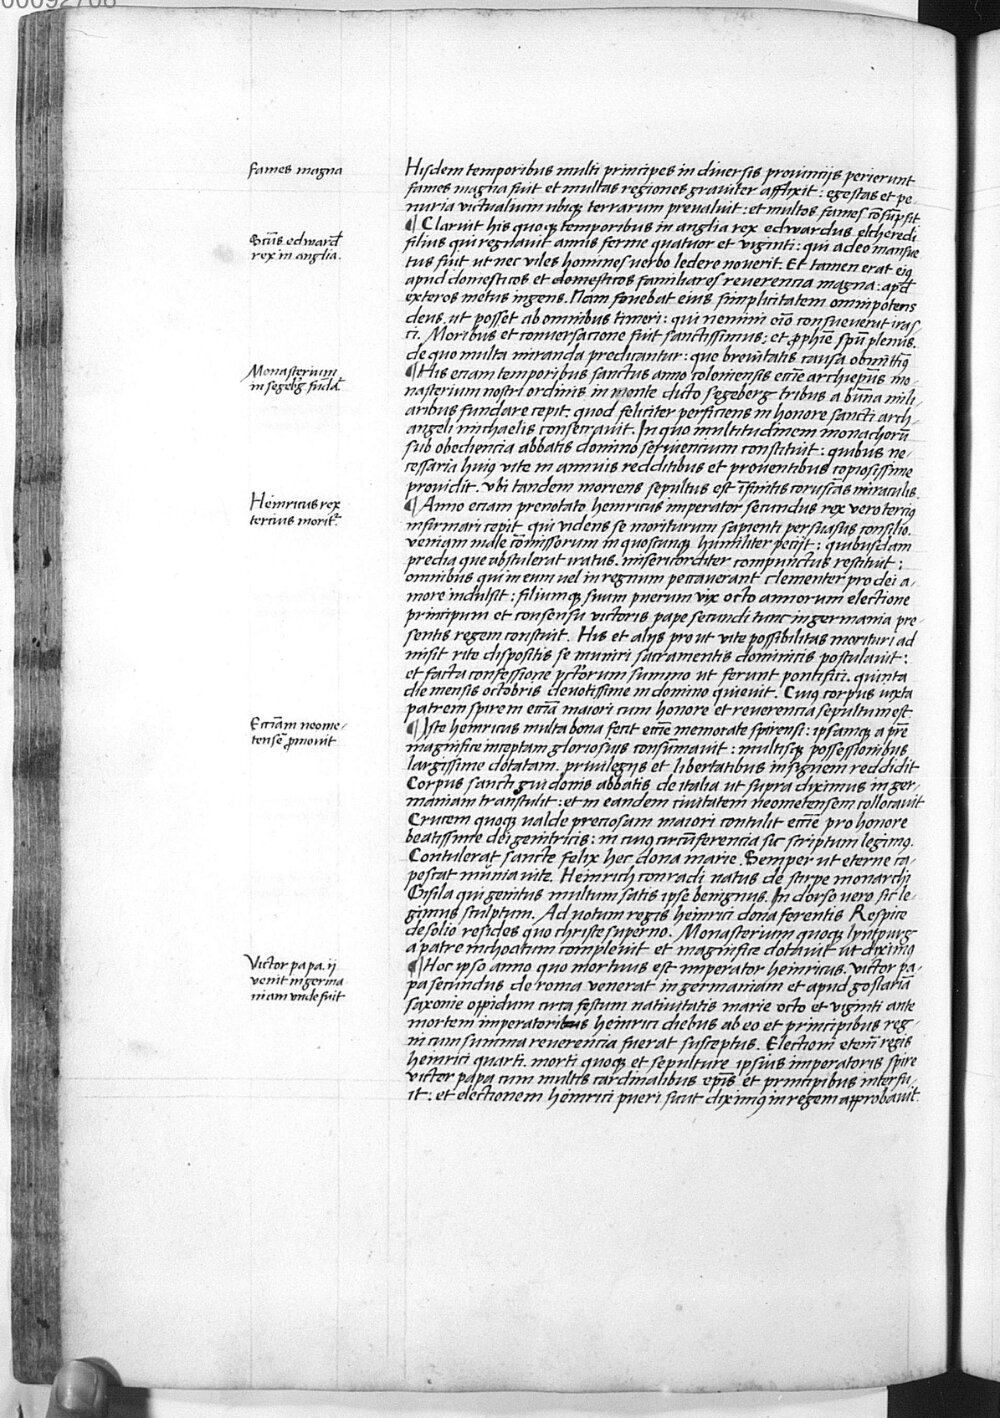 00092708
fames magna
Hisdem temporibus multi principes in diversis provincijs perierunt
fames magna fuit et multas regiones graviter afflixit : egestas et pe
nuria victualium ubiqꝫ terrarum prevaluit : et multos fames cōsūpsit
¶ Claruit his quoqꝫ temporibus in anglia rex edwardus etcheredi
Sct̄us edward̄
rex in anglia.
filius qui regnavit annis ferme quatuor et viginti : qui adeo mansue
tus fuit ut nec viles homines verbo ledere noverit. Et tamen erat eiꝯ
apud domesticos et domesticos familiares reverencia magna : apd̄
exteros metus ingens. Nam fovebat eius simplicitatem omnipotens
deus, ut posset ab omnibus timeri : qui nemini oīo consueverat iras
ci. Moribus et conversacione fuit sanctissimus : et ꝓphīe spū plenus.
de quo multa miranda predicantur : que brevitatis causa obmittiꝯ
Monasterium
in segebḡ fūdat̄
¶ His eciam temporibus sanctus anno coloniensis ecc̄ie archiep̄us mo-
nasterium nostri ordinis in monte dicto segeberg tribus a būna mili-
aribus fundare cepit. quod feliciter perficiens in honore sancti arch-
angeli michaelis consecravit. In quo multitudinem monachorū
sub obediencia abbatis domino serviencium constituit : quibus ne-
cessaria huiꝯ vite in annuis redditibus et proventibus copiosissime
providit. ubi tandem moriens sepultus est īfinitis coruscās miraculis.
Heinricus rex
tercius morit᷑.
¶ Anno eciam prenotato heinricus imperator secundus rex vero terciꝯ
infirmari cepit. qui videns se moriturum sapienti persuasus consilio.
veniam male cōmissorum in quoscunqꝫ humiliter pecijt : quibusdam
predia que abstulerat iratus. misericorditer compunctus restituit :
omnibus qui in eum vel in regnum peccaverant clementer pro dei a-
more indulsit : filiumqꝫ suum puerum vix octo annorum electione
principum et consensu victoris pape secundi tunc in germania pre-
sentis regem constituit. His et alijs prout vite possibilitas morituri ad
misit rite dispositis se muniri sacramentis dominicis postulavit :
et facta confessione pctōrum summo ut ferunt pontifici. quinta
die mensis octobris devotissime in domino quievit. Cuiꝯ corpus iuxta
patrem spire in ecc̄ia maiori cum honore et reverencia sepultum est.
Ecc̄iam neome-
tensē ꝓmovit
¶ Iste heinricus multa bona fecit ecc̄ie memorate spirensi : ipsamqꝫ a pr̄e
magnifice inceptam gloriosius consūmavit : multisqꝫ possessionibus
largissime dotatam. privilegijs et libertatibus insignem reddidit
Corpus sancti guidonis abbatis de italia ut supra diximus in ger-
maniam transtulit : et in eandem civitatem neometensem collocavit
Crucem quoqꝫ valde preciosam maiori contulit ecc̄ie pro honore
beatissime dei genitricis : in cuiꝯ circūferencia sic scriptum legimꝯ.
Contulerat sancte felix hec dona marie. Semper ut eterne ca-
pescat munia vite. Heinrich conradi natus de stirpe monarchi
Gisila qui genitus multum satis ipse benignus. In dorso vero sic le-
gimus sculptum. Ad votum regis heinrici dona ferentis Respice
de solio resides quo christe superno. Monasterium quoqꝫ lyntpurg
a patre inchoatum complevit et magnifice dotavit ut diximꝯ
Victor papa .ij
venit in germa
niam unde fuit
¶ Hoc ipso anno quo mortuus est imperator heinricus. victor pa-
pa secundus de roma venerat in germaniam et apud goslariā
saxonie oppidum circa festum nativitatis marie octo et viginti ante
mortem imperatoris heinrici diebus ab eo et principibus reg-
ni cum summa reverencia fuerat susceptus. Electioni etem̄ regis
heinrici quarti. morti quoqꝫ et sepulture ipsius imperatoris spire
victor papa cum multis cardinalibus ep̄is et principibus interfu-
it : et electionem heinrici pueri sicut diximꝯ in regem approbavit.